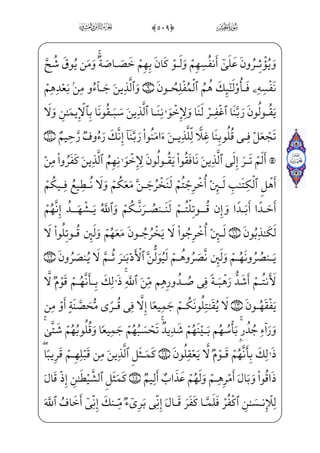 ﴿٥٠٩﴾
وَيُؤْثِرُونَ عَلَىٰٓ أَنفُسِهِمْ وَلَوْ كَانَ بِهِمْ خَصَاصَةٌ ۚ وَمَن يُوقَ شُحَّ
نَفْسِهِۦ فَأُو۟لَٰٓئِكَ هُمُ ٱلْمُفْلِحُونَ ٩ وَٱلَّذِينَ جَآءُو مِنۢ بَعْدِهِمْ
يَقُولُونَ رَبَّنَا ٱغْفِرْ لَنَا وَلِإِخْوَٰنِنَا ٱلَّذِينَ سَبَقُونَا بِٱلْإِيمَٰنِ وَلَا
تَجْعَلْ فِى قُلُوبِنَا غِلًّا لِّلَّذِينَ ءَامَنُوا۟ رَبَّنَآ إِنَّكَ رَءُوفٌ رَّحِيمٌ
۞ أَلَمْ تَرَ إِلَى ٱلَّذِينَ نَافَقُوا۟ يَقُولُونَ لِإِخْوَٰنِهِمُ ٱلَّذِينَ كَفَرُوا۟ مِنْ
أَهْلِ ٱلْكِتَٰبِ لَئِنْ أُخْرِجْتُمْ لَنَخْرُجَنَّ مَعَكُمْ وَلَا نُطِيعُ فِيكُمْ
أَحَدًا أَبَدًا وَإِن قُوتِلْتُمْ لَنَنصُرَنَّكُمْ وَٱللَّهُ يَشْهَدُ إِنَّهُمْ
لَكَٰذِبُونَ ١١ لَئِنْ أُخْرِجُوا۟ لَا يَخْرُجُونَ مَعَهُمْ وَلَئِن قُوتِلُوا۟ لَا
يَنصُرُونَهُمْ وَلَئِن نَّصَرُوهُمْ لَيُوَلُّنَّ ٱلْأَدْبَٰرَ ثُمَّ لَا يُنصَرُونَ ١٢
لَأَنتُمْ أَشَدُّ رَهْبَةً فِى صُدُورِهِم مِّنَ ٱللَّهِ ۚ ذَٰلِكَ بِأَنَّهُمْ قَوْمٌ لَّا
يَفْقَهُونَ ١٣ لَا يُقَٰتِلُونَكُمْ جَمِيعًا إِلَّا فِى قُرًى مُّحَصَّنَةٍ أَوْ مِن
وَرَآءِ جُدُرٍۭ ۚ بَأْسُهُم بَيْنَهُمْ شَدِيدٌ ۚ تَحْسَبُهُمْ جَمِيعًا وَقُلُوبُهُمْ شَتَّىٰ ۚ
ذَٰلِكَ بِأَنَّهُمْ قَوْمٌ لَّا يَعْقِلُونَ ١٤ كَمَثَلِ ٱلَّذِينَ مِن قَبْلِهِمْ قَرِيبًا ۖ
ذَاقُوا۟ وَبَالَ أَمْرِهِمْ وَلَهُمْ عَذَابٌ أَلِيمٌ ١٥ كَمَثَلِ ٱلشَّيْطَٰنِ إِذْ قَالَ
لِلْإِنسَٰنِ ٱكْفُرْ فَلَمَّا كَفَرَ قَالَ إِنِّى بَرِىٓءٌ مِّنكَ إِنِّىٓ أَخَافُ ٱللَّهَ